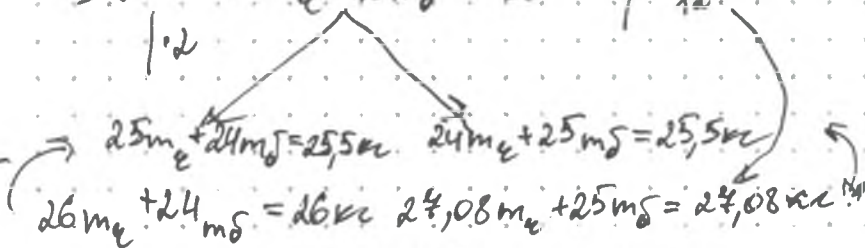 |·2
25mч+24mб=25,5кг 24mч+25mб=25,5кг
26mч+24mб=26кг 27,08mч+25mб=27,08кг